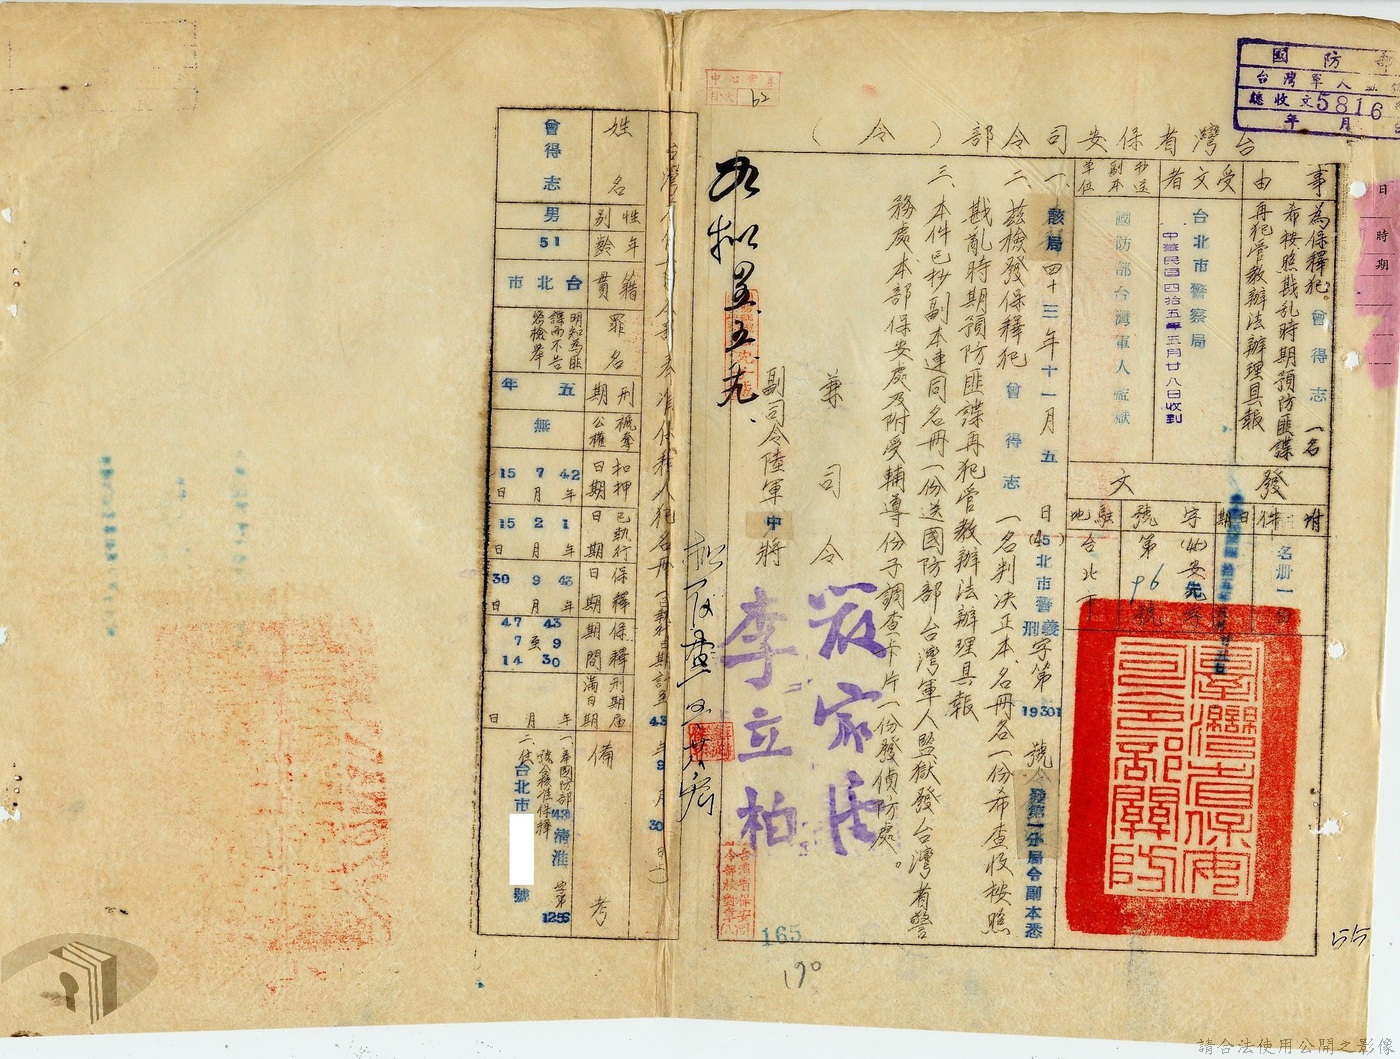 國防部
台灣軍人監獄
總收文5816
年 月
62
台灣省保安司令部（令）
事由
為保釋犯 曾得志 一名
希按照戡亂時期預防匪諜
再犯管教辦法辦理具報
受文者
台北市警察局
中華民國四拾五年五月廿八日收到
抄送副本單位
國防部台灣軍人監獄
發文
附件
名册一份
日期
字號
(45)安先
第96號
駐地
台北市
臺灣省保安司令部關防
一、該局四十三年十一月五日(45)北市警刑義字第19301號令發第一分局令副本悉
二、茲檢發保釋犯 曾得志 一名判決正本、名冊各一份希查收按照
戡亂時期預防匪諜再犯管教辦法辦理具報
三、本件已抄副本連同名冊一份送國防部台灣軍人監獄發台灣省警
務處本部保安處及附受輔導份子調查卡片一份發偵防處。
兼司令
嚴家淦
副司令陸軍中將
李立柏
台灣省保安司令部校對章
165
190
55
姓名 曾得志
性別 男
年齡 51
籍貫 台北市
罪名 明知為匪諜而不告密檢舉
刑期 五年
褫奪公權 無
扣押日期 42年7月15日
已執行日期 1年2月15日
保釋日期 43年9月30日
保釋期間 43 9 30至47 7 14
刑期屆滿日期 年 月 日
備考
一、奉國防部43清淮字第1256號令核准保釋
二、住台北市 號
日
時
期
請合法使用公開之影像